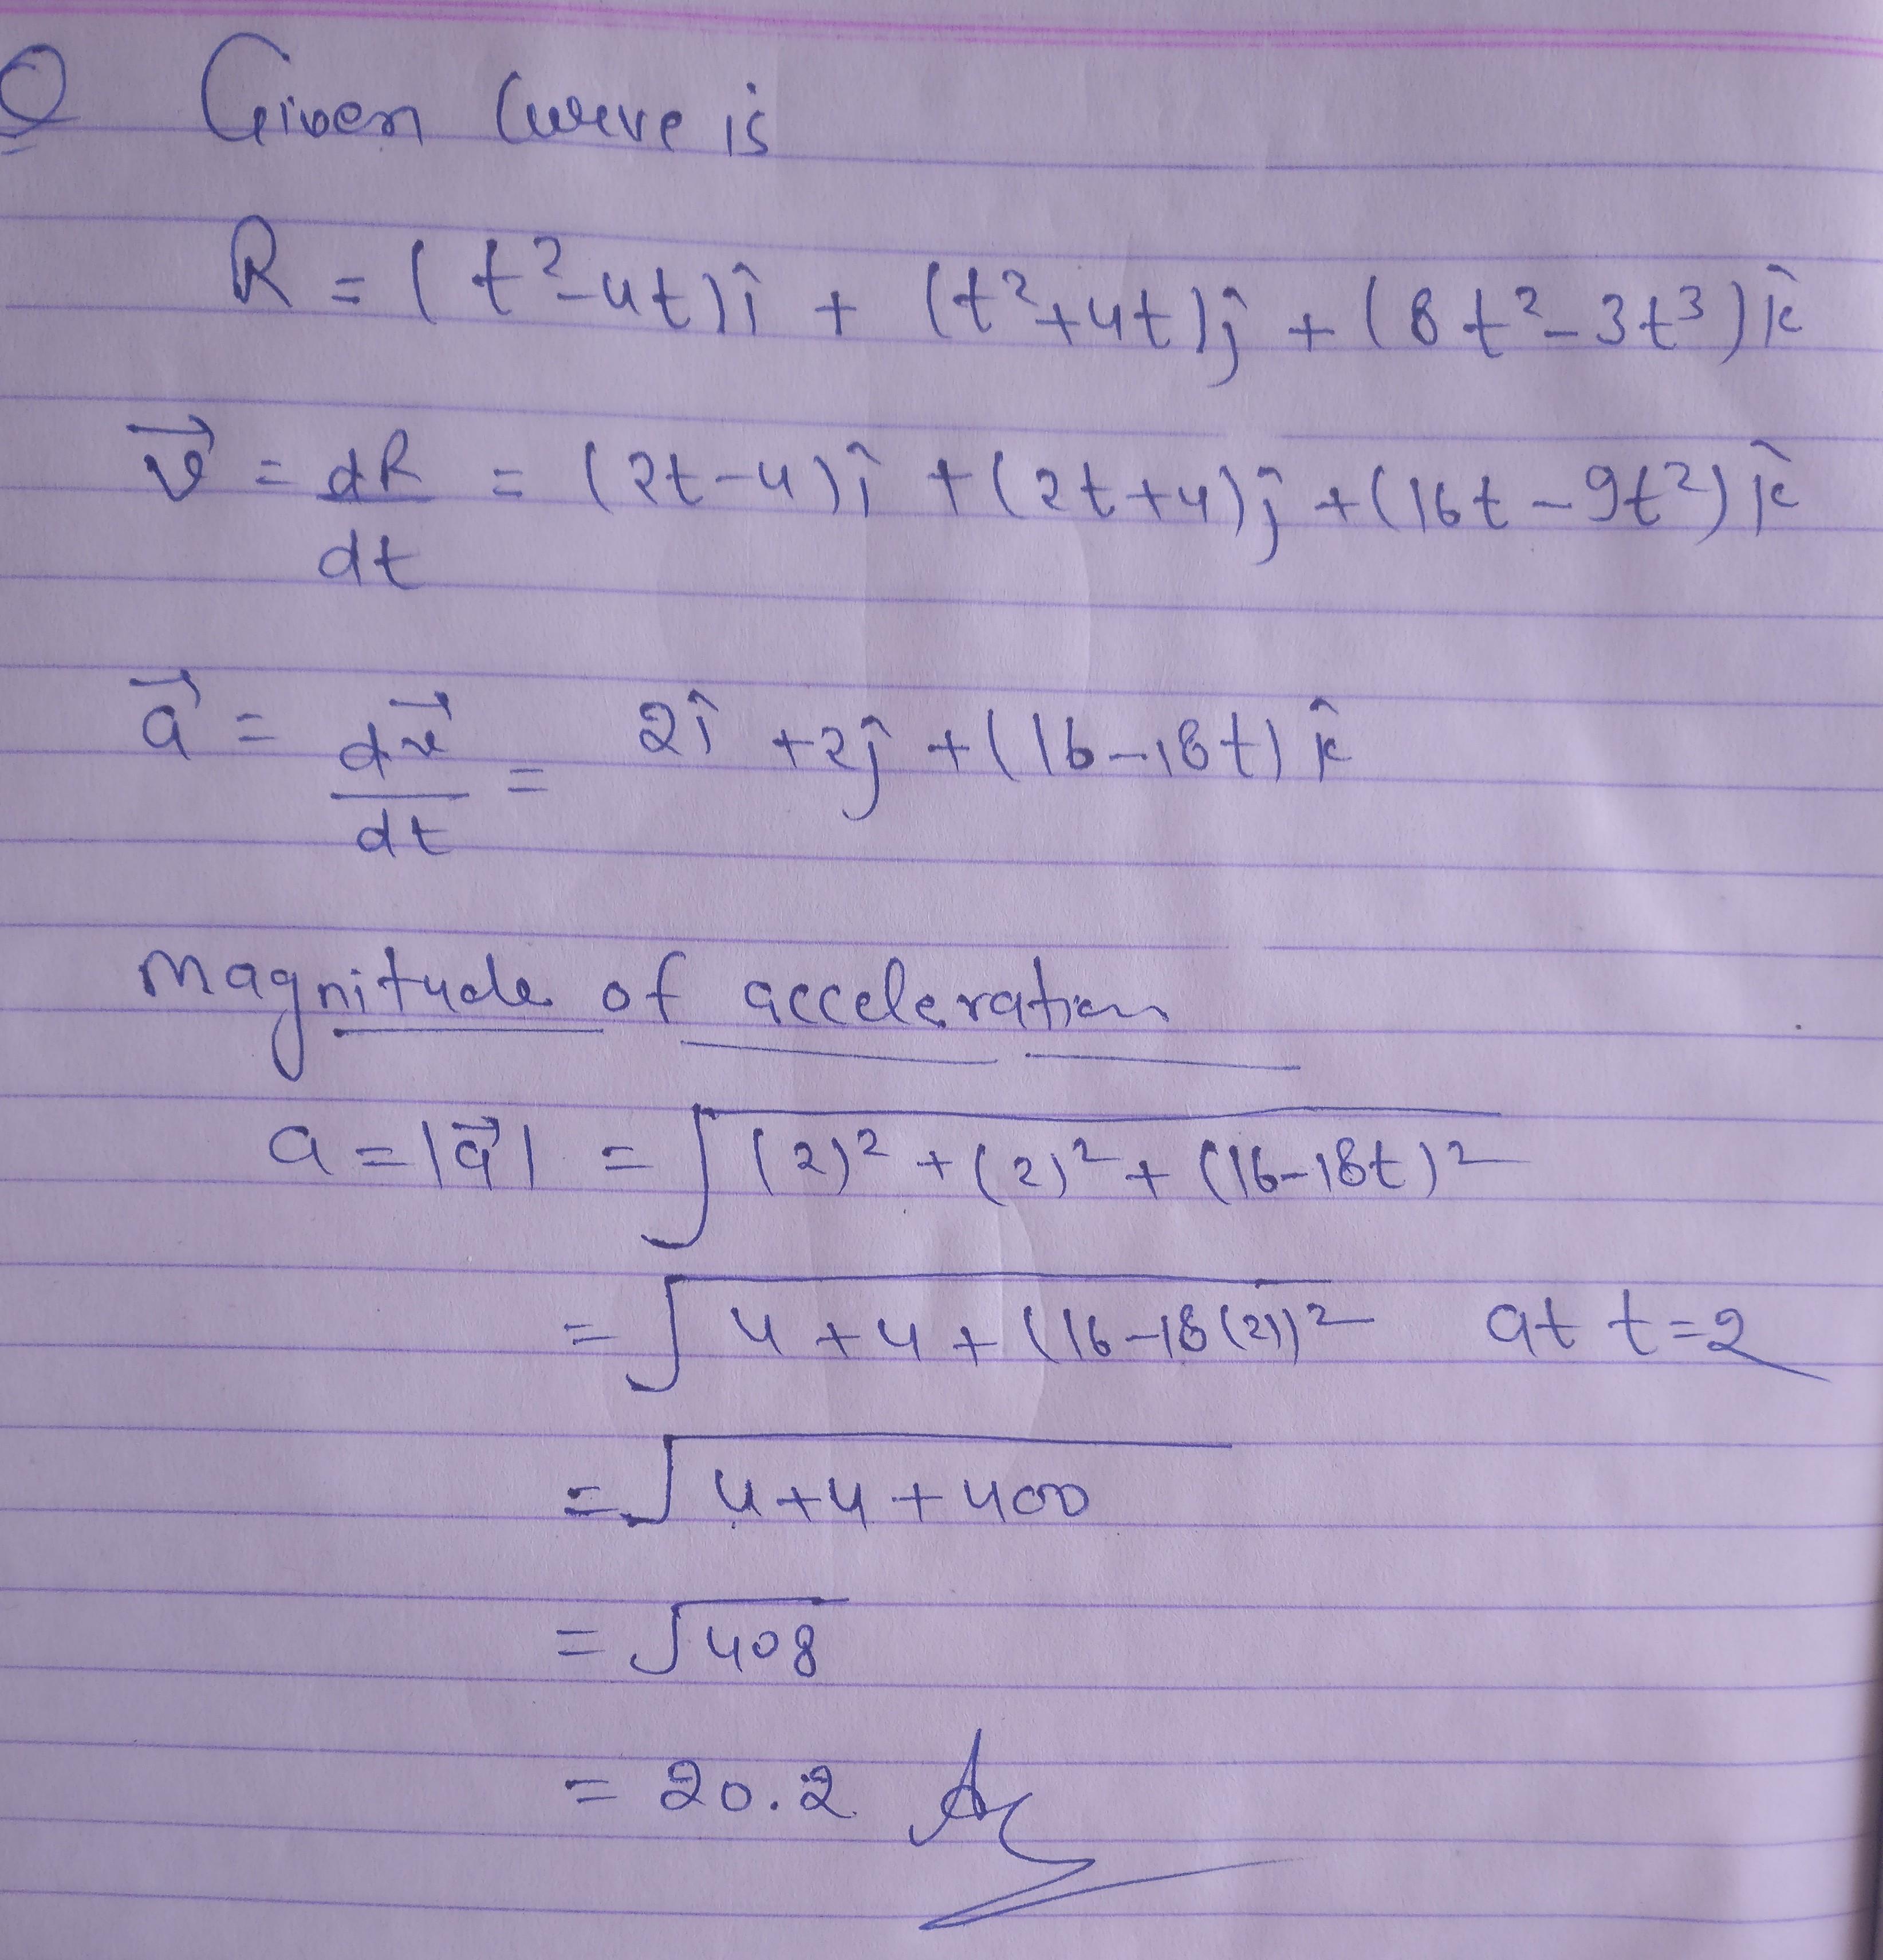 Q Given Curve is
R = (t² - 4t) î + (t² + 4t) ĵ + (8t² - 3t³) k̂
v⃗ = dR/dt = (2t - 4) î + (2t + 4) ĵ + (16t - 9t²) k̂
a⃗ = dv⃗/dt = 2î + 2ĵ + (16 - 18t) k̂
Magnitude of acceleration
a = |a⃗| = √((2)² + (2)² + (16 - 18t)²)
= √(4 + 4 + (16 - 18(2))²) at t = 2
= √(4 + 4 + 400)
= √408
= 20.2 A